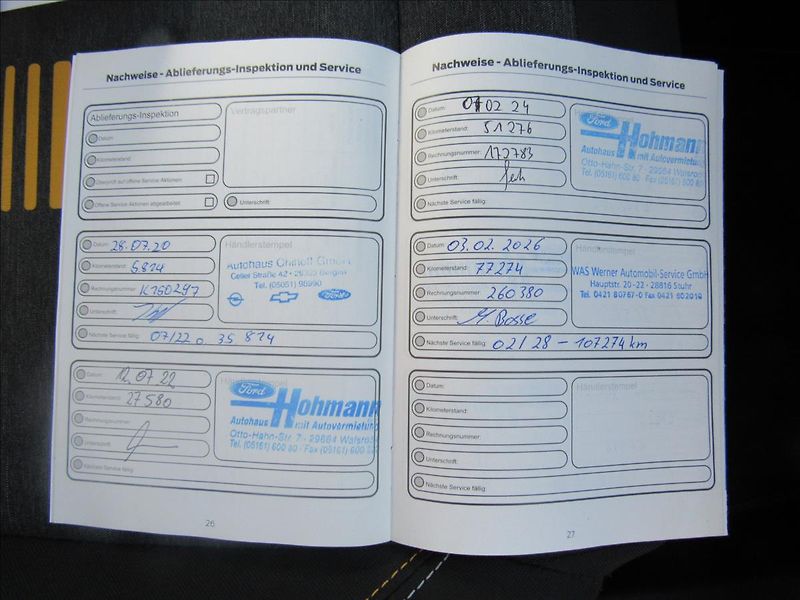 Nachweise - Ablieferungs-Inspektion und Service
Ablieferungs-Inspektion
Vertragspartner
Datum:
Kilometerstand:
Überprüft auf offene Service-Aktionen
Offene Service-Aktionen abgearbeitet
Unterschrift:
Datum: 28.07.20
Kilometerstand: 5814
Rechnungsnummer: K160297
Unterschrift:
Nächste Service fällig: 07/22 o 35 814
Händlerstempel
Autohaus
Celler Straße 42 · 29303 Bergen
Tel. (05051) 98990
Ford
Datum: 12.07.22
Kilometerstand: 27580
Rechnungsnummer:
Unterschrift:
Nächste Service fällig:
Händlerstempel
Ford
Hohmann
Autohaus mit Autovermietung
Otto-Hahn-Str. 7 · 29664 Walsrode
Tel. (05161) 600 80 · Fax (05161) 600
26
Nachweise - Ablieferungs-Inspektion und Service
Datum: 01 02 24
Kilometerstand: 51276
Rechnungsnummer: 172783
Unterschrift:
Nächste Service fällig:
Ford
Hohmann
Autohaus mit Autovermietung
Otto-Hahn-Str. 7 · 29664 Walsrode
Tel. (05161) 600 80 · Fax (05161) 600 80
Datum: 03.02.2026
Kilometerstand: 77274
Rechnungsnummer: 260380
Unterschrift: M. Bosse
Nächste Service fällig: 02/28 - 107274 km
Händlerstempel
WAS Werner Automobil-Service GmbH
Hauptstr. 20-22 · 28816 Stuhr
Tel. 0421 80767-0 Fax 0421 802019
Datum:
Kilometerstand:
Rechnungsnummer:
Unterschrift:
Nächste Service fällig:
Händlerstempel
27